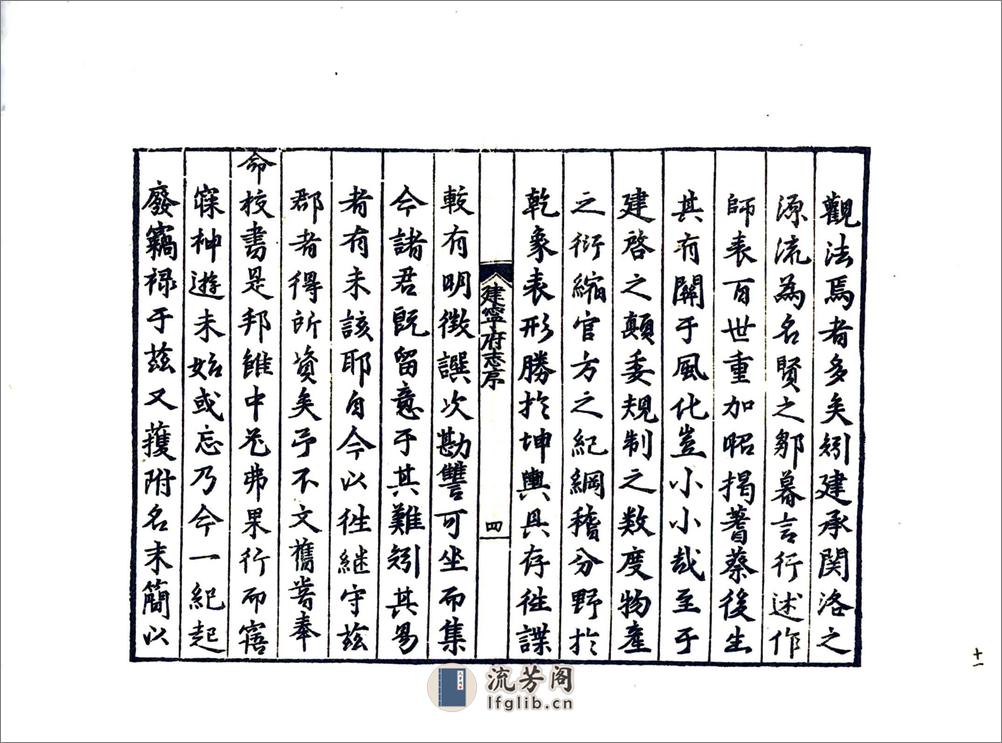 觀法焉者多矣矧建承関洛之
源流為名賢之鄒暮言行述作
師表百世重加昭揭蓍蔡後生
其有關于風化豈小小哉至于
建啓之顛委規制之数度物產
之衍縮官方之紀綱稽分野於
乾象表形勝於坤輿具存徃諜
建寧府志序
四
較有明徵譔次勘讐可坐而集
今諸君既留意于其難矧其易
者有未該耶自今以徃継守茲
郡者得所資矣予不文舊嘗奉
命校書是邦雖中
弗果行而寤
寐神遊未始或忘乃今一紀起
廢竊禄于茲又獲附名末簡以
十一
流芳阁
lfglib.cn